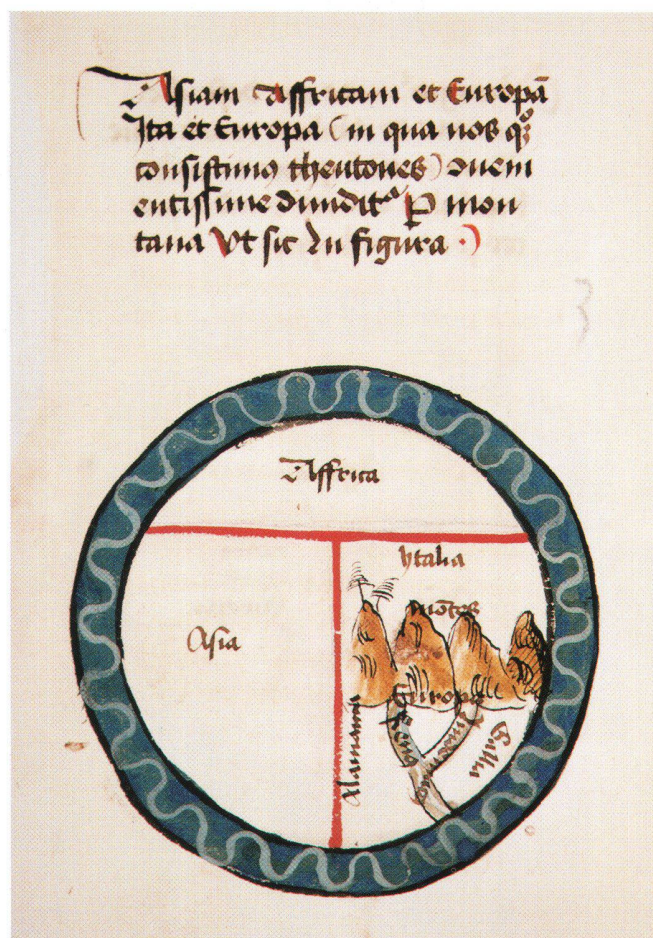 Asiam Affricam et Europā
Ita et Europa (in qua nos qꝫ
consistimꝰ theutones) conueni
entissime diuidit᷑ ꝑ mon
tana Vt sic In figura
Affrica
Ytalia
mōtes
Asia
Europa
Alamania
Renus
Gallia